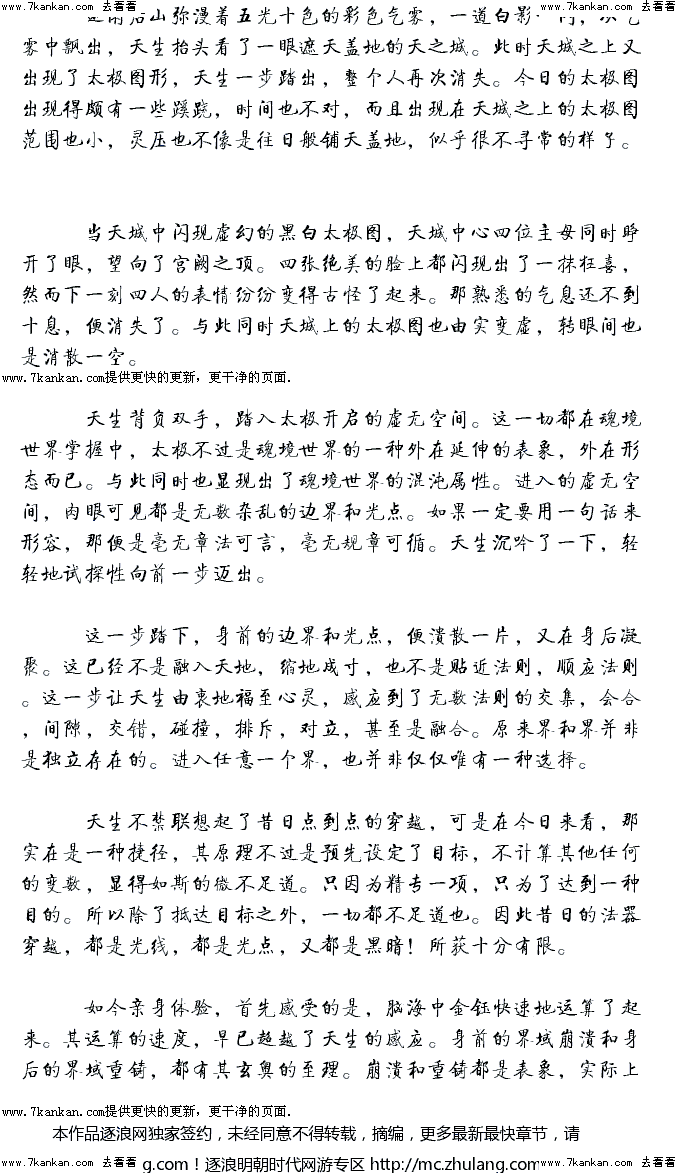 www.7kankan.com 去看看 www.7kankan.com 去看看 www.7kankan.com 去看看
后山弥漫着五光十色的彩色气雾，一道白影
雾中飘出，天生抬头看了一眼遮天盖地的天之城。此时天城之上又
出现了太极图形，天生一步踏出，整个人再次消失。今日的太极图
出现得颇有一些蹊跷，时间也不对，而且出现在天城之上的太极图
范围也小，灵压也不像是往日般铺天盖地，似乎很不寻常的样子。
当天城中闪现虚幻的黑白太极图，天城中心四位主母同时睁
开了眼，望向了宫阙之顶。四张绝美的脸上都闪现出了一抹狂喜，
然而下一刻四人的表情纷纷变得古怪了起来。那熟悉的气息还不到
十息，便消失了。与此同时天城上的太极图也由实变虚，转眼间也
是消散一空。
www.7kankan.com提供更快的更新，更干净的页面.
天生背负双手，踏入太极开启的虚无空间。这一切都在魂境
世界掌握中，太极不过是魂境世界的一种外在延伸的表象，外在形
态而已。与此同时也显现出了魂境世界的混沌属性。进入的虚无空
间，肉眼可见都是无数杂乱的边界和光点。如果一定要用一句话来
形容，那便是毫无章法可言，毫无规章可循。天生沉吟了一下，轻
轻地试探性向前一步迈出。
这一步踏下，身前的边界和光点，便溃散一片，又在身后凝
聚。这已经不是融入天地，缩地成寸，也不是贴近法则，顺应法则
。这一步让天生由衷地福至心灵，感应到了无数法则的交集，会合
，间隙，交错，碰撞，排斥，对立，甚至是融合。原来界和界并非
是独立存在的。进入任意一个界，也并非仅仅唯有一种选择。
天生不禁联想起了昔日点到点的穿越，可是在今日来看，那
实在是一种捷径，其原理不过是预先设定了目标，不计算其他任何
的变数，显得如斯的微不足道。只因为精专一项，只为了达到一种
目的。所以除了抵达目标之外，一切都不足道也。因此昔日的法器
穿越，都是光线，都是光点，又都是黑暗！所获十分有限。
如今亲身体验，首先感受的是，脑海中金钰快速地运算了起
来。其运算的速度，早已超越了天生的感应。身前的界域崩溃和身
后的界域重铸，都有其玄奥的至理。崩溃和重铸都是表象，实际上
www.7kankan.com提供更快的更新，更干净的页面.
本作品逐浪网独家签约，未经同意不得转载，摘编，更多最新最快章节，请
www.7kankan.com 去看看 g.com！逐浪明朝时代网游专区 http://mc.zhulang.com www.7kankan.com 去看看